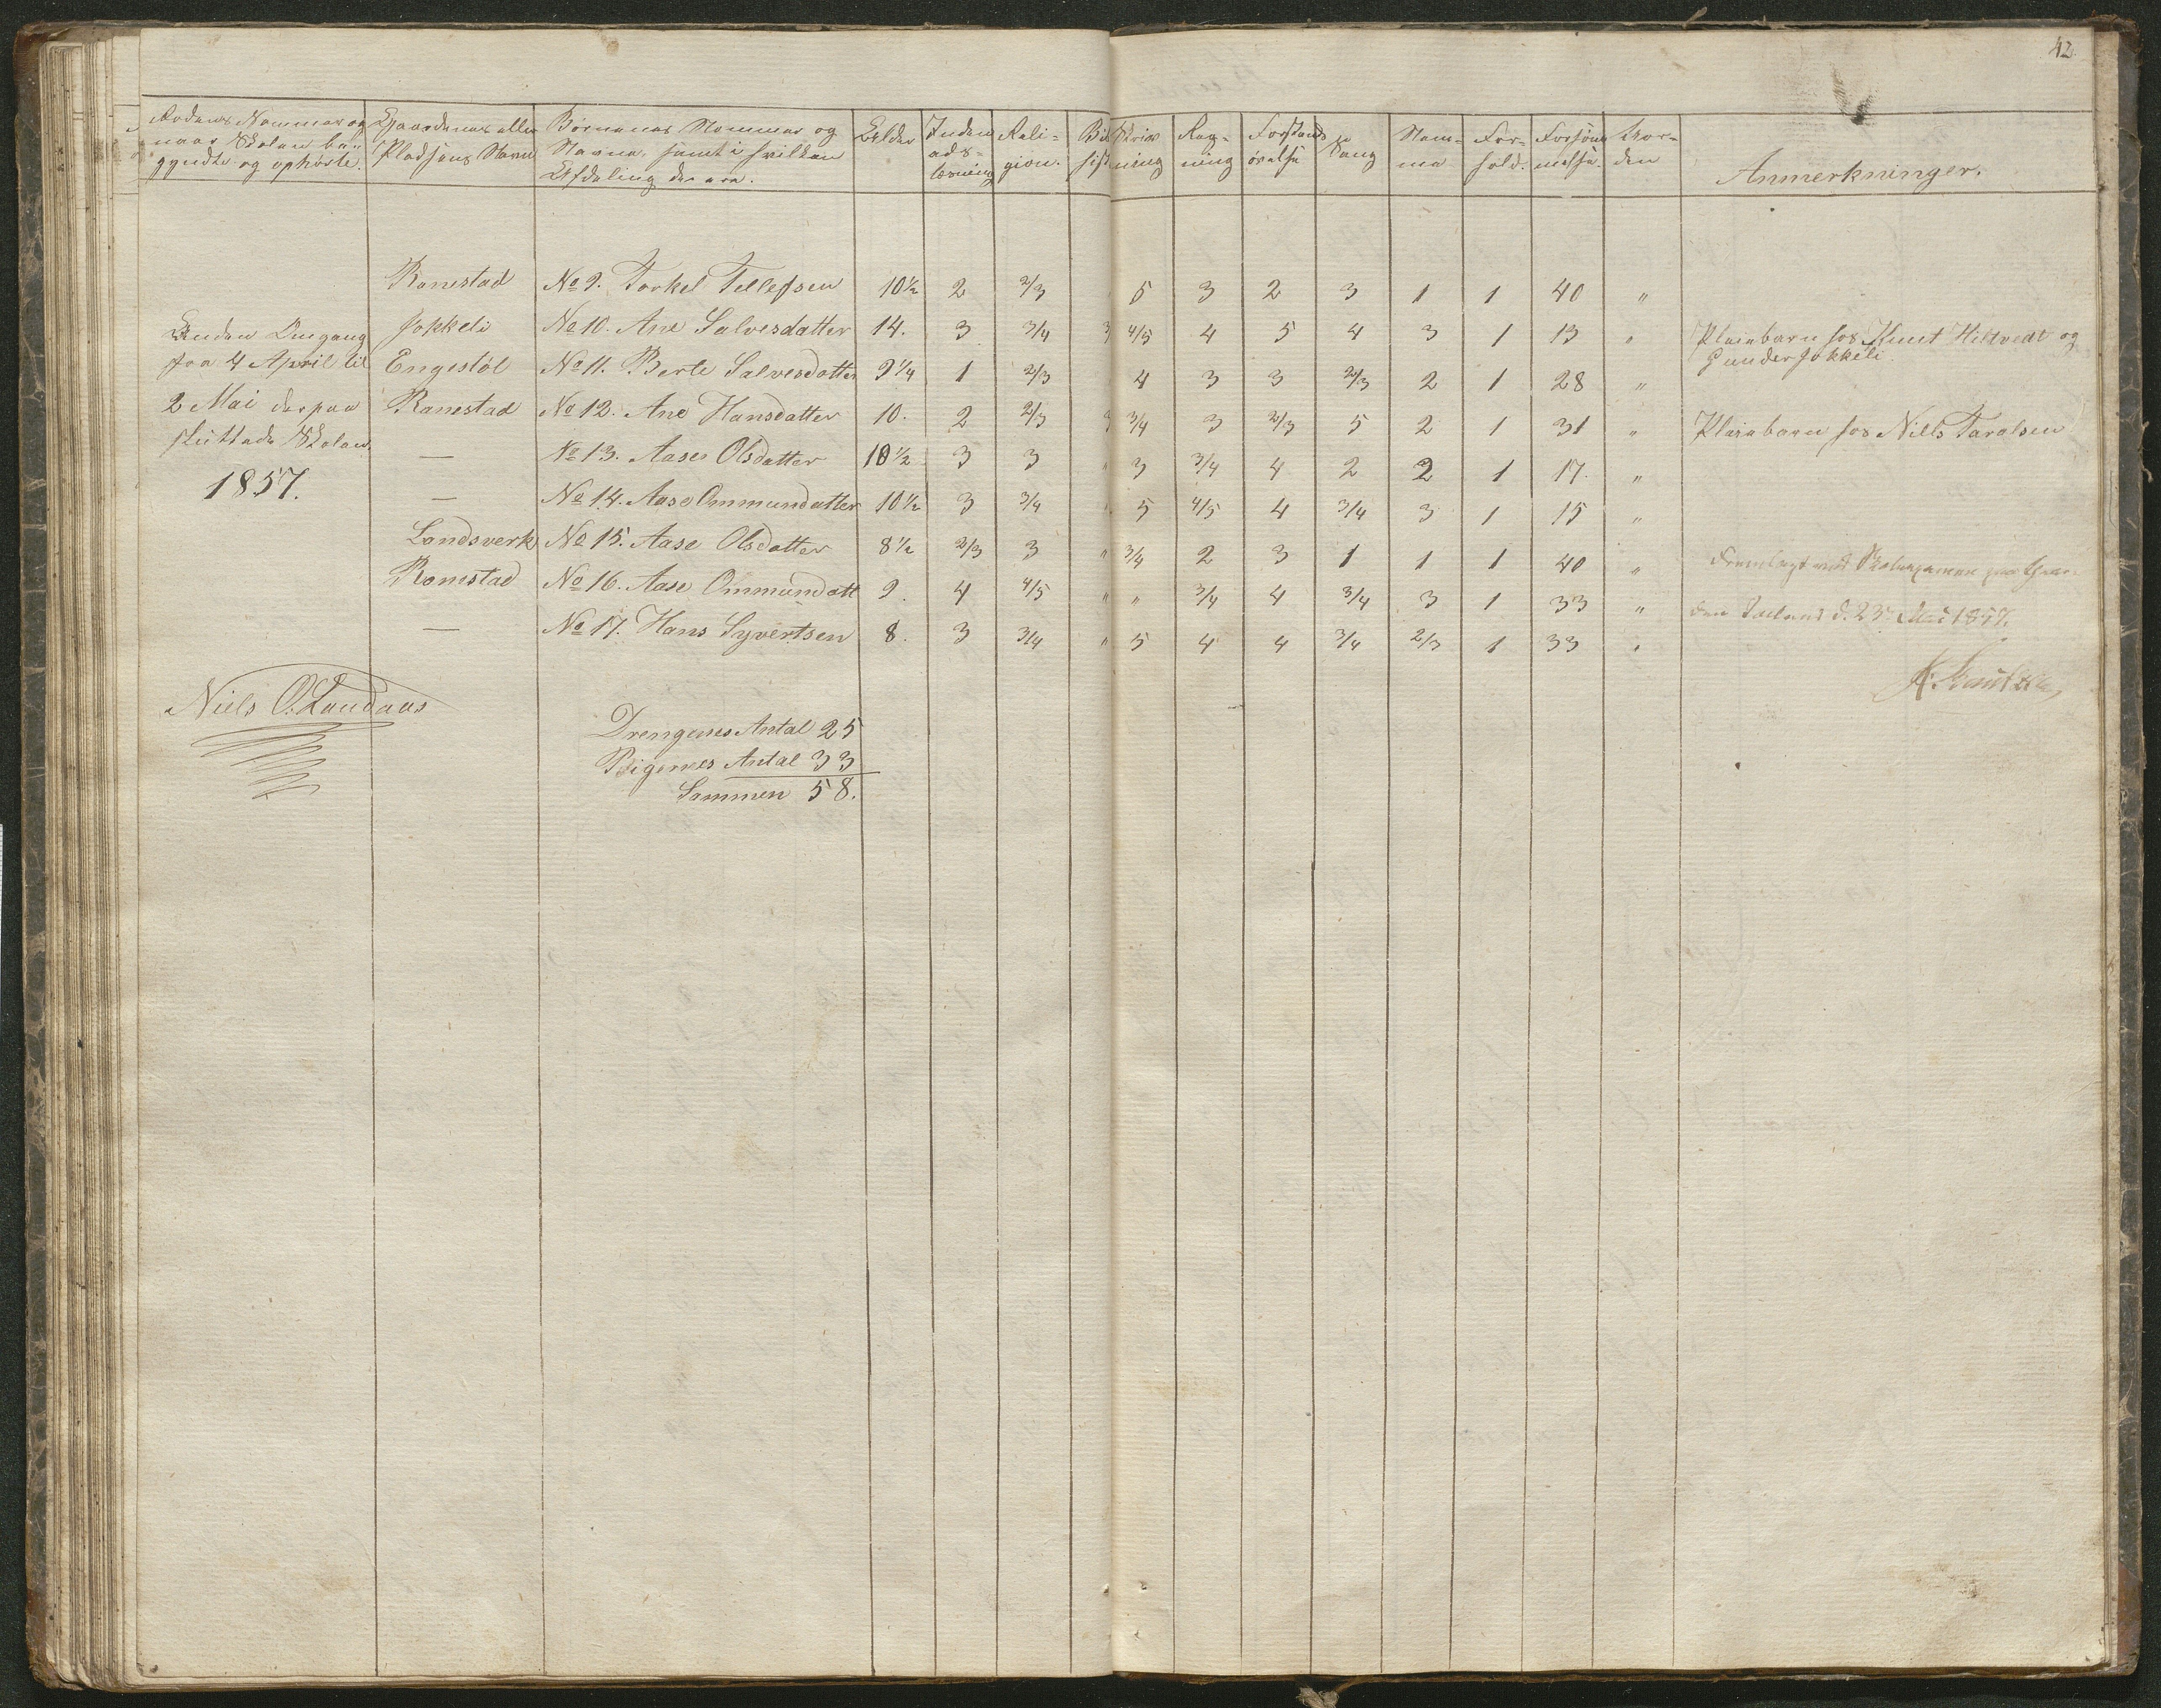 42.
Rodens Nummer og naar Skolen begyndte og ophørte. | Gaardenes eller Pladsens Navn | Børnenes Nummer og Navne, samt i hvilken Afdeling de ere. | Alder | Inden­ads­læsning | Reli=gion. | Skriv ning | Reg=ning | Forstands øvelse | Sang | Nem=me | For=hold. | Forsøm melse. | Anmerkninger.
Ronestad No 9. Torkel Tellefsen 10½ 2 2/3 5 3 2 3 1 1 40 "
Anden Omgang Jokkeli No 10. Ane Salvesdatter 14. 3 3/4 3 4/5 4 5 4 3 1 13 " Pleiebarn hos Knut Hiltvedt og
fra 4 April til Engestøl No 11. Berte Salvesdatter 9¼ 1 2/3 4 3 3 2/3 2 1 28 " Gunder Jokkeli.
2 Mai derpaa Ranestad No 12. Ane Hansdatter 10. 2 2/3 3 3/4 3 2/3 5 2 1 31 " Pleiebarn hos Niels Taralsen
sluttede Skolen. — No 13. Aase Olsdatter 10½ 3 3 " 3 3/4 4 2 2 1 17. "
1857. — No 14. Aase Ommundatter 10½ 3 3/4 " 5 4/5 4 3/4 3 1 15 "
Landsverk No 15. Aase Olsdatter 8½ 2/3 3 " 3/4 2 3 1 1 1 40 " Fremlagt ved Skoleexamen paa
Ronestad No 16. Aase Ommundatt 9. 4 4/5 " " 3/4 4 3/4 3 1 33 " d. 23 Mai 1857.
— No 17. Hans Syvertsen 8. 3 3/4 " 5 4 4 3/4 2/3 1 33 "
Niels O. Landaas
Drengenes Antal 25
Pigernes Antal 33
Sammen 58.